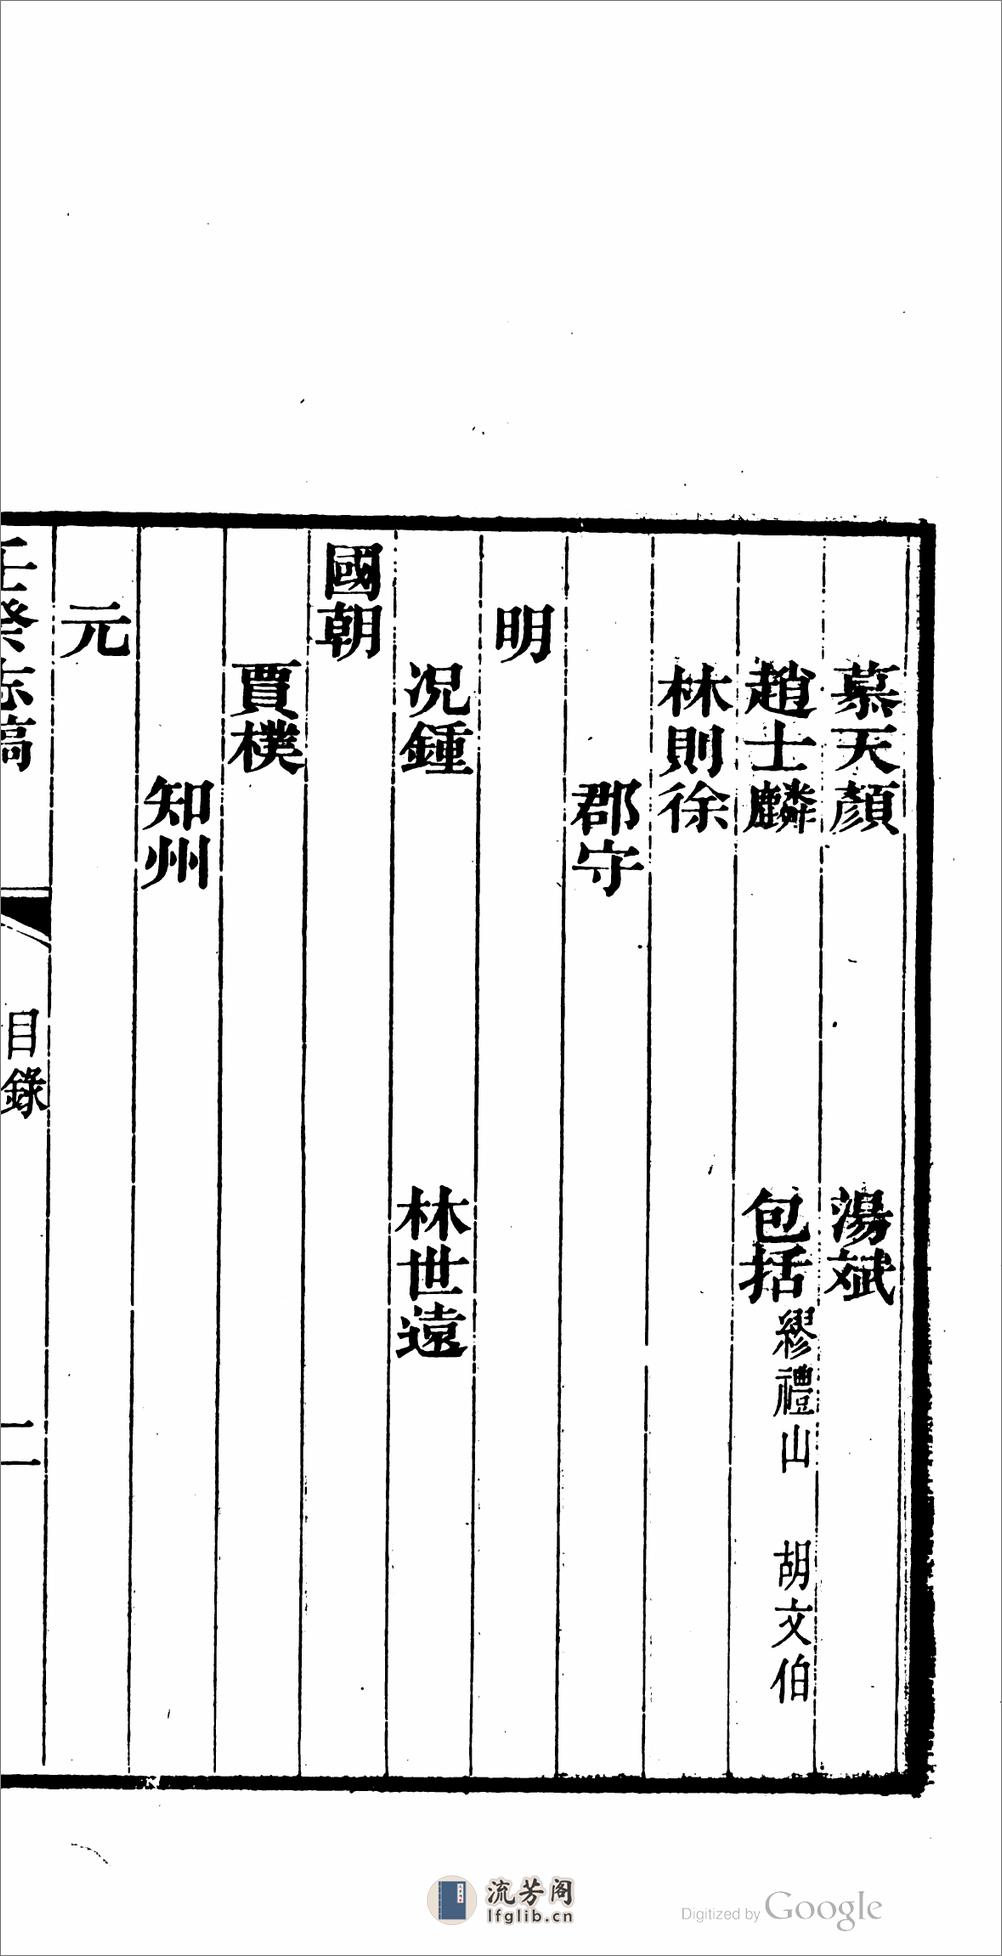 慕天顏 湯斌
趙士麟 包括 繆禮山 胡文伯
林則徐
郡守
明
况鍾 林世遠
國朝
賈樸
知州
元
壬癸志稿 目錄 二
流芳阁
lfglib.cn
Digitized by Google